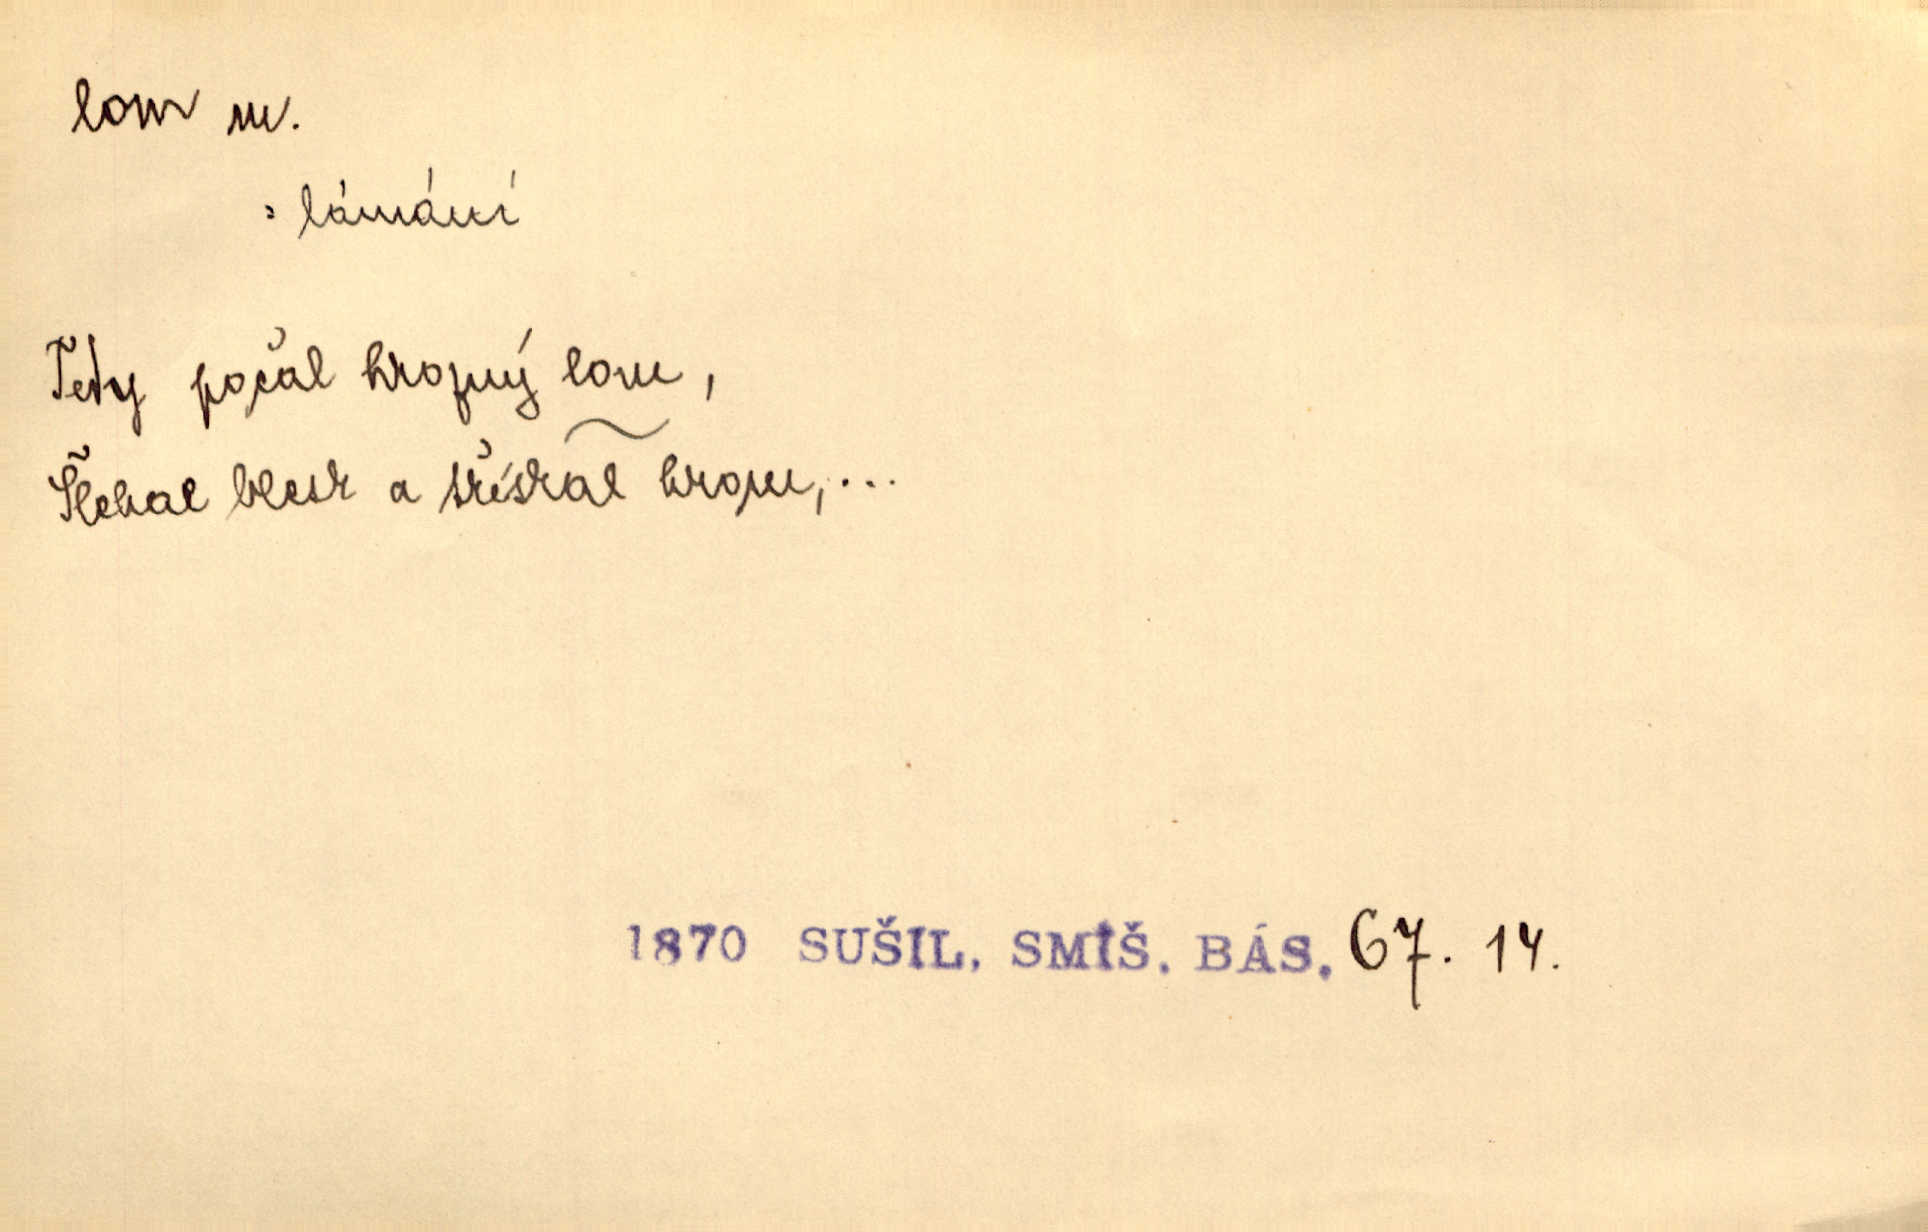 lom m.
: lámání
Tedy počal hrozný lom,
Šlehal blesk a třískal hrom, ...
1870 SUŠIL. SMÍŠ. BÁS. 67. 14.